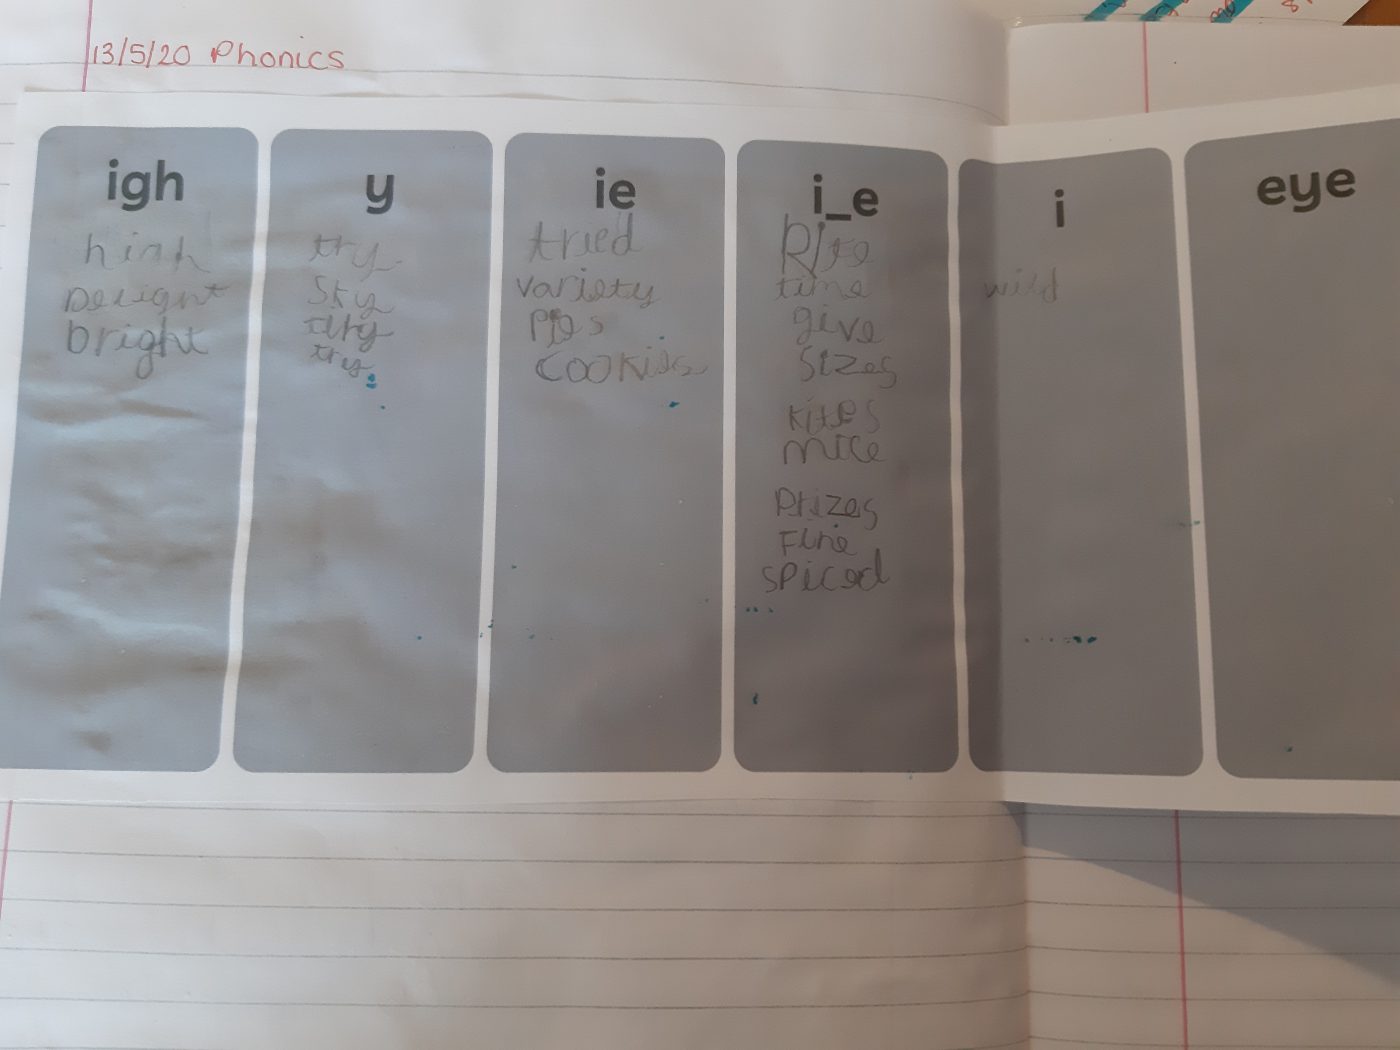 13/5/20 Phonics
igh
high
Delight
bright
y
try
Sky
try
ie
tried
variety
Pies
COOKies
i_e
time
give
Sizes
kites
mice
Prizes
Fine
spiced
i
wild
eye